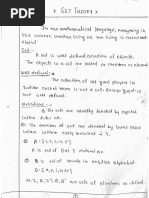 * SET THEORY *
In our mathematical language, everything in
this universe, whether living or non-living is called an
object.
Set:-
A set is well defined collection of objects.
The objects in a set are called its members or elements
Well defined:-
The collection of good players in
Indian cricket team is not a set because "good" is
not well defined.
Notations:-
① The sets are usually denoted by capital
letters A, B, C etc.
② The elements of set are denoted by lower case
③ A = {1,2,3,4,5}
A is set of first 5 natural no.
④ B is set of vowels in english alphabet
B = {a,e,i,o,u}